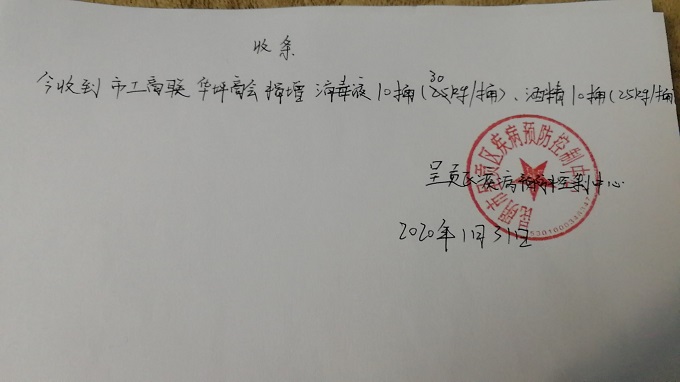 收条
今收到 市工商联 华坪商会 捐增 消毒液10桶(30公斤/桶)、酒精10桶(25公斤/桶
呈贡区疾病预防控制中心
昆明市呈贡区疾病预防控制中心
2020年1月31日